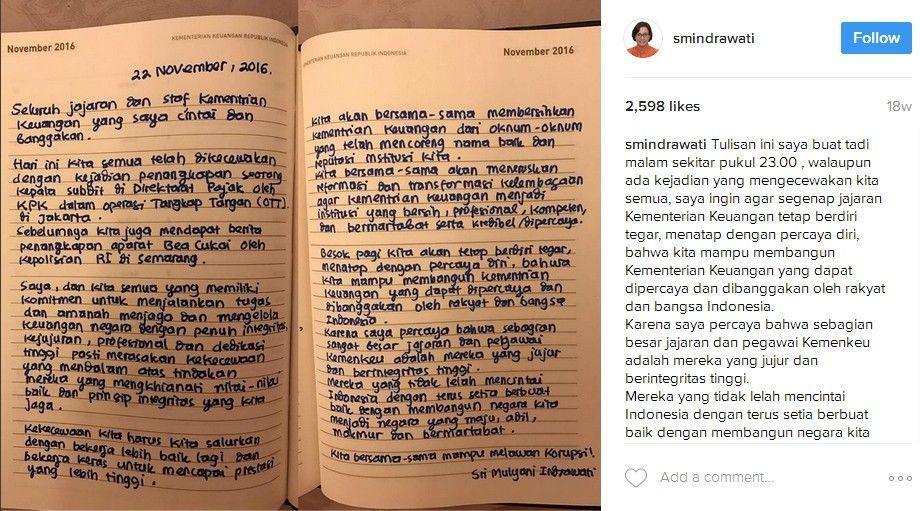 November 2016
KEMENTERIAN KEUANGAN REPUBLIK INDONESIA
22 NOVEMBER, 2016.
Seluruh jajaran dan staf Kementrian
Keuangan yang saya cintai dan
banggakan.
Hari ini kita semua telah dikecewakan
dengan kejadian penangkapan seorang
kepala subdit di Direktorat Pajak oleh
KPK dalam operasi Tangkap Tangan (OTT).
di Jakarta.
Sebelumnya kita juga mendapat berita
penangkapan aparat Bea Cukai oleh
kepolisian RI di Semarang.
Saya, dan kita semua yang memiliki
komitmen untuk menjalankan tugas
dan amanah menjaga dan mengelola
keuangan negara dengan penuh integritas,
kejujuran, profesional dan dedikasi
tinggi pasti merasakan kekecewaan
yang mendalam atas tindakan
mereka yang mengkhianati nilai-nilai
baik dan prinsip integritas yang kita
jaga.
Kekecewaan kita harus kita salurkan
dengan bekerja lebih baik lagi dan
bekerja keras untuk mencapai prestasi
yang lebih tinggi.
KEMENTERIAN KEUANGAN REPUBLIK INDONESIA
November 2016
Kita akan bersama-sama membersihkan
Kementrian Keuangan dari oknum-oknum
yang telah mencoreng nama baik dan
reputasi institusi kita.
Kita bersama-sama akan meneruskan
reformasi dan transformasi kelembagaan
agar Kementrian Keuangan menjadi
institusi yang bersih, profesional, kompeten,
dan bermartabat serta kredibel dipercaya.
Besok pagi kita akan tetap berdiri tegar,
menatap dengan percaya diri, bahwa
kita mampu membangun Kementrian
Keuangan yang dapat dipercaya dan
dibanggakan oleh rakyat dan bangsa
Indonesia.
Karena saya percaya bahwa sebagian
sangat besar jajaran dan pegawai
Kemenkeu adalah mereka yang jujur
dan berintegritas tinggi.
Mereka yang tidak lelah mencintai
Indonesia dengan terus setia berbuat
baik dengan membangun negara kita
menjadi negara yang maju, adil,
makmur dan bermartabat.
Kita bersama-sama mampu melawan korupsi!
Sri Mulyani Indrawati
smindrawati
Follow
2,598 likes
18w
smindrawati Tulisan ini saya buat tadi
malam sekitar pukul 23.00 , walaupun
ada kejadian yang mengecewakan kita
semua, saya ingin agar segenap jajaran
Kementerian Keuangan tetap berdiri
tegar, menatap dengan percaya diri,
bahwa kita mampu membangun
Kementerian Keuangan yang dapat
dipercaya dan dibanggakan oleh rakyat
dan bangsa Indonesia.
Karena saya percaya bahwa sebagian
besar jajaran dan pegawai Kemenkeu
adalah mereka yang jujur dan
berintegritas tinggi.
Mereka yang tidak lelah mencintai
Indonesia dengan terus setia berbuat
baik dengan membangun negara kita
Add a comment...